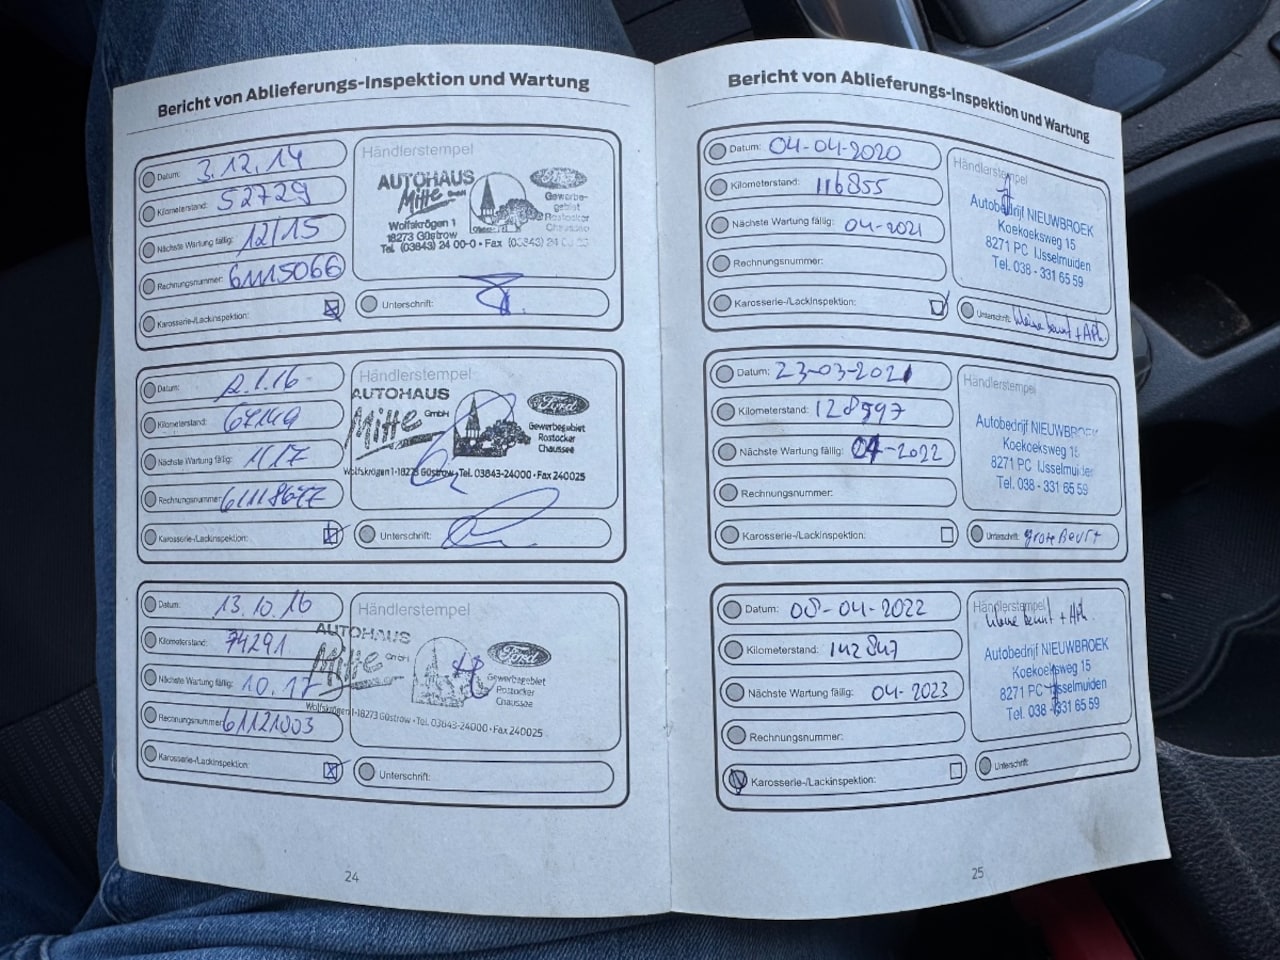 Bericht von Ablieferungs-Inspektion und Wartung
Datum: 3.12.14
Kilometerstand: 52729
Nächste Wartung fällig: 12/15
Rechnungsnummer: 61115066
Karosserie-/Lackinspektion:
Händlerstempel
AUTOHAUS
Mitte GmbH
Wolfskrögen 1
18273 Güstrow
Tel. (03843) 24 00-0 • Fax (03843) 24
Ford
Gewerbe-
gebiet
Rostocker
Chaussee
Unterschrift:
Datum: 12.1.16
Kilometerstand:
Nächste Wartung fällig: 1/17
Rechnungsnummer: 61118677
Karosserie-/Lackinspektion:
Händlerstempel
AUTOHAUS
Mitte GmbH
Ford
Gewerbegebiet
Rostocker
Chaussee
Wolfskrögen 1•18273 Güstrow•Tel. 03843-24000•Fax 240025
Unterschrift:
Datum: 13.10.16
Kilometerstand: 74291
Nächste Wartung fällig: 10.17
Rechnungsnummer: 61121003
Karosserie-/Lackinspektion:
Händlerstempel
AUTOHAUS
Mitte GmbH
Ford
Gewerbegebiet
Rostocker
Chaussee
Wolfskrögen 1•18273 Güstrow•Tel. 03843-24000•Fax 240025
Unterschrift:
24
Bericht von Ablieferungs-Inspektion und Wartung
Datum: 04-04-2020
Kilometerstand: 116855
Nächste Wartung fällig: 04-2021
Rechnungsnummer:
Karosserie-/Lackinspektion:
Händlerstempel
Autobedrijf NIEUWBROEK
Koekoeksweg 15
8271 PC IJsselmuiden
Tel. 038 - 331 65 59
Unterschrift: kleine beurt + APK.
Datum: 23-03-2021
Kilometerstand: 128597
Nächste Wartung fällig: 04-2022
Rechnungsnummer:
Karosserie-/Lackinspektion:
Händlerstempel
Autobedrijf NIEUWBROEK
Koekoeksweg 15
8271 PC IJsselmuiden
Tel. 038 - 331 65 59
Unterschrift: grote Beurt
Datum: 08-04-2022
Kilometerstand: 142847
Nächste Wartung fällig: 04-2023
Rechnungsnummer:
Karosserie-/Lackinspektion:
Händlerstempel
kleine beurt + APK.
Autobedrijf NIEUWBROEK
Koekoeksweg 15
8271 PC IJsselmuiden
Tel. 038 - 331 65 59
Unterschrift:
25